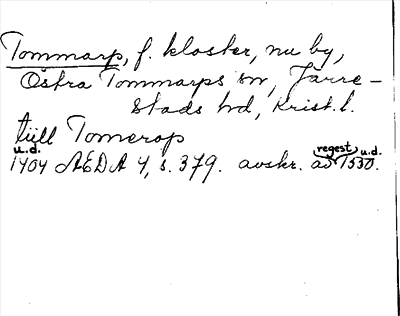 Tommarp, f. kloster, nu by,
Östra Tommarps sn, Järre-
stads hd, Krist. l.
tiill Tomerop
u.d. regest u.d.
1404 AEDA 4, s. 379. avskr. av 1530.